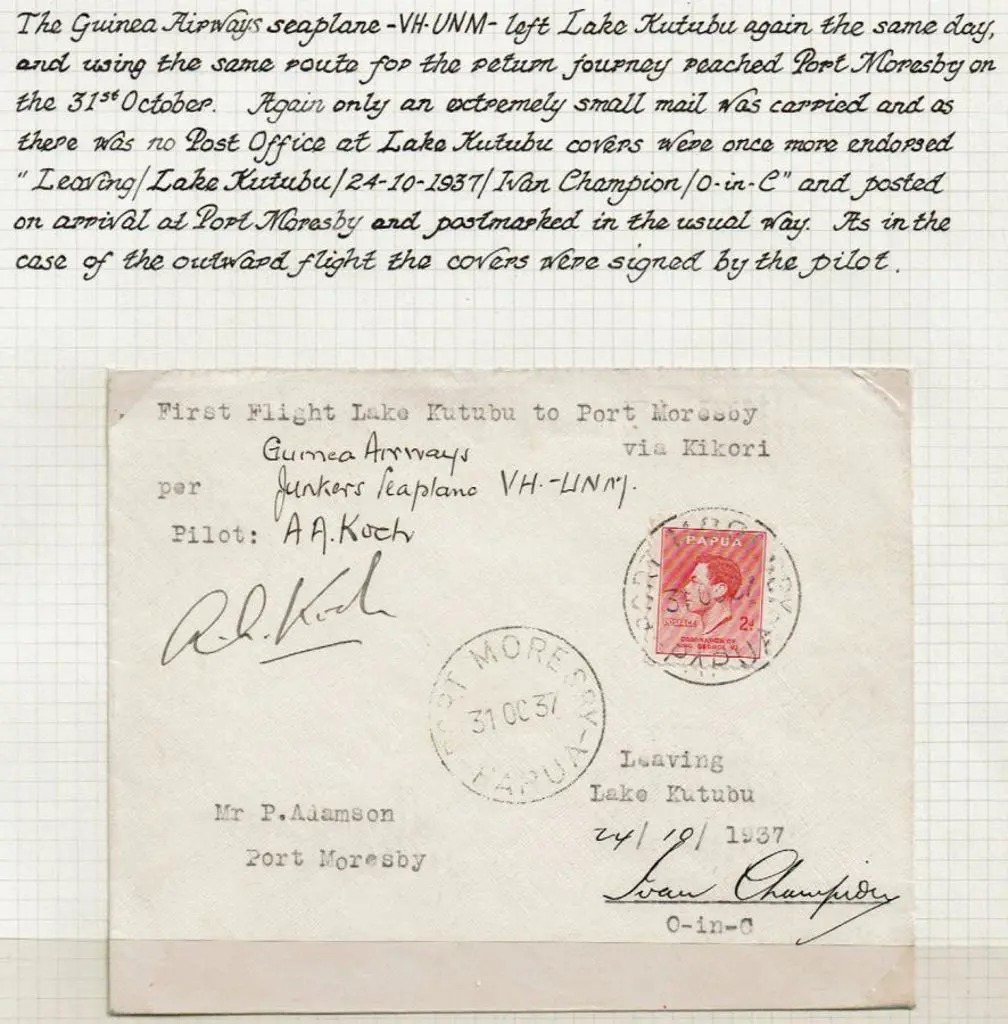 The Guinea Airways seaplane -VH-UNM- left Lake Kutubu again the same day,
and using the same route for the return journey reached Port Moresby on
the 31st October. Again only an extremely small mail was carried and as
there was no Post Office at Lake Kutubu covers were once more endorsed
"Leaving/Lake Kutubu/24-10-1937/Ivan Champion/O-in-C" and posted
on arrival at Port Moresby and postmarked in the usual way. As in the
case of the outward flight the covers were signed by the pilot.
First Flight Lake Kutubu to Port Moresby
via Kikori
Guinea Airways
per Junkers Seaplane VH.-UNM.
Pilot: A A. Koch
A.A. Koch
PORT MORESBY
PAPUA
PAPUA
2d
CORONATION OF
KING GEORGE VI
PORT MORESBY-
31 OC 37
PAPUA-
Leaving
Lake Kutubu
24/10/1937
Ivan Champion
O-in-C
Mr P.Adamson
Port Moresby